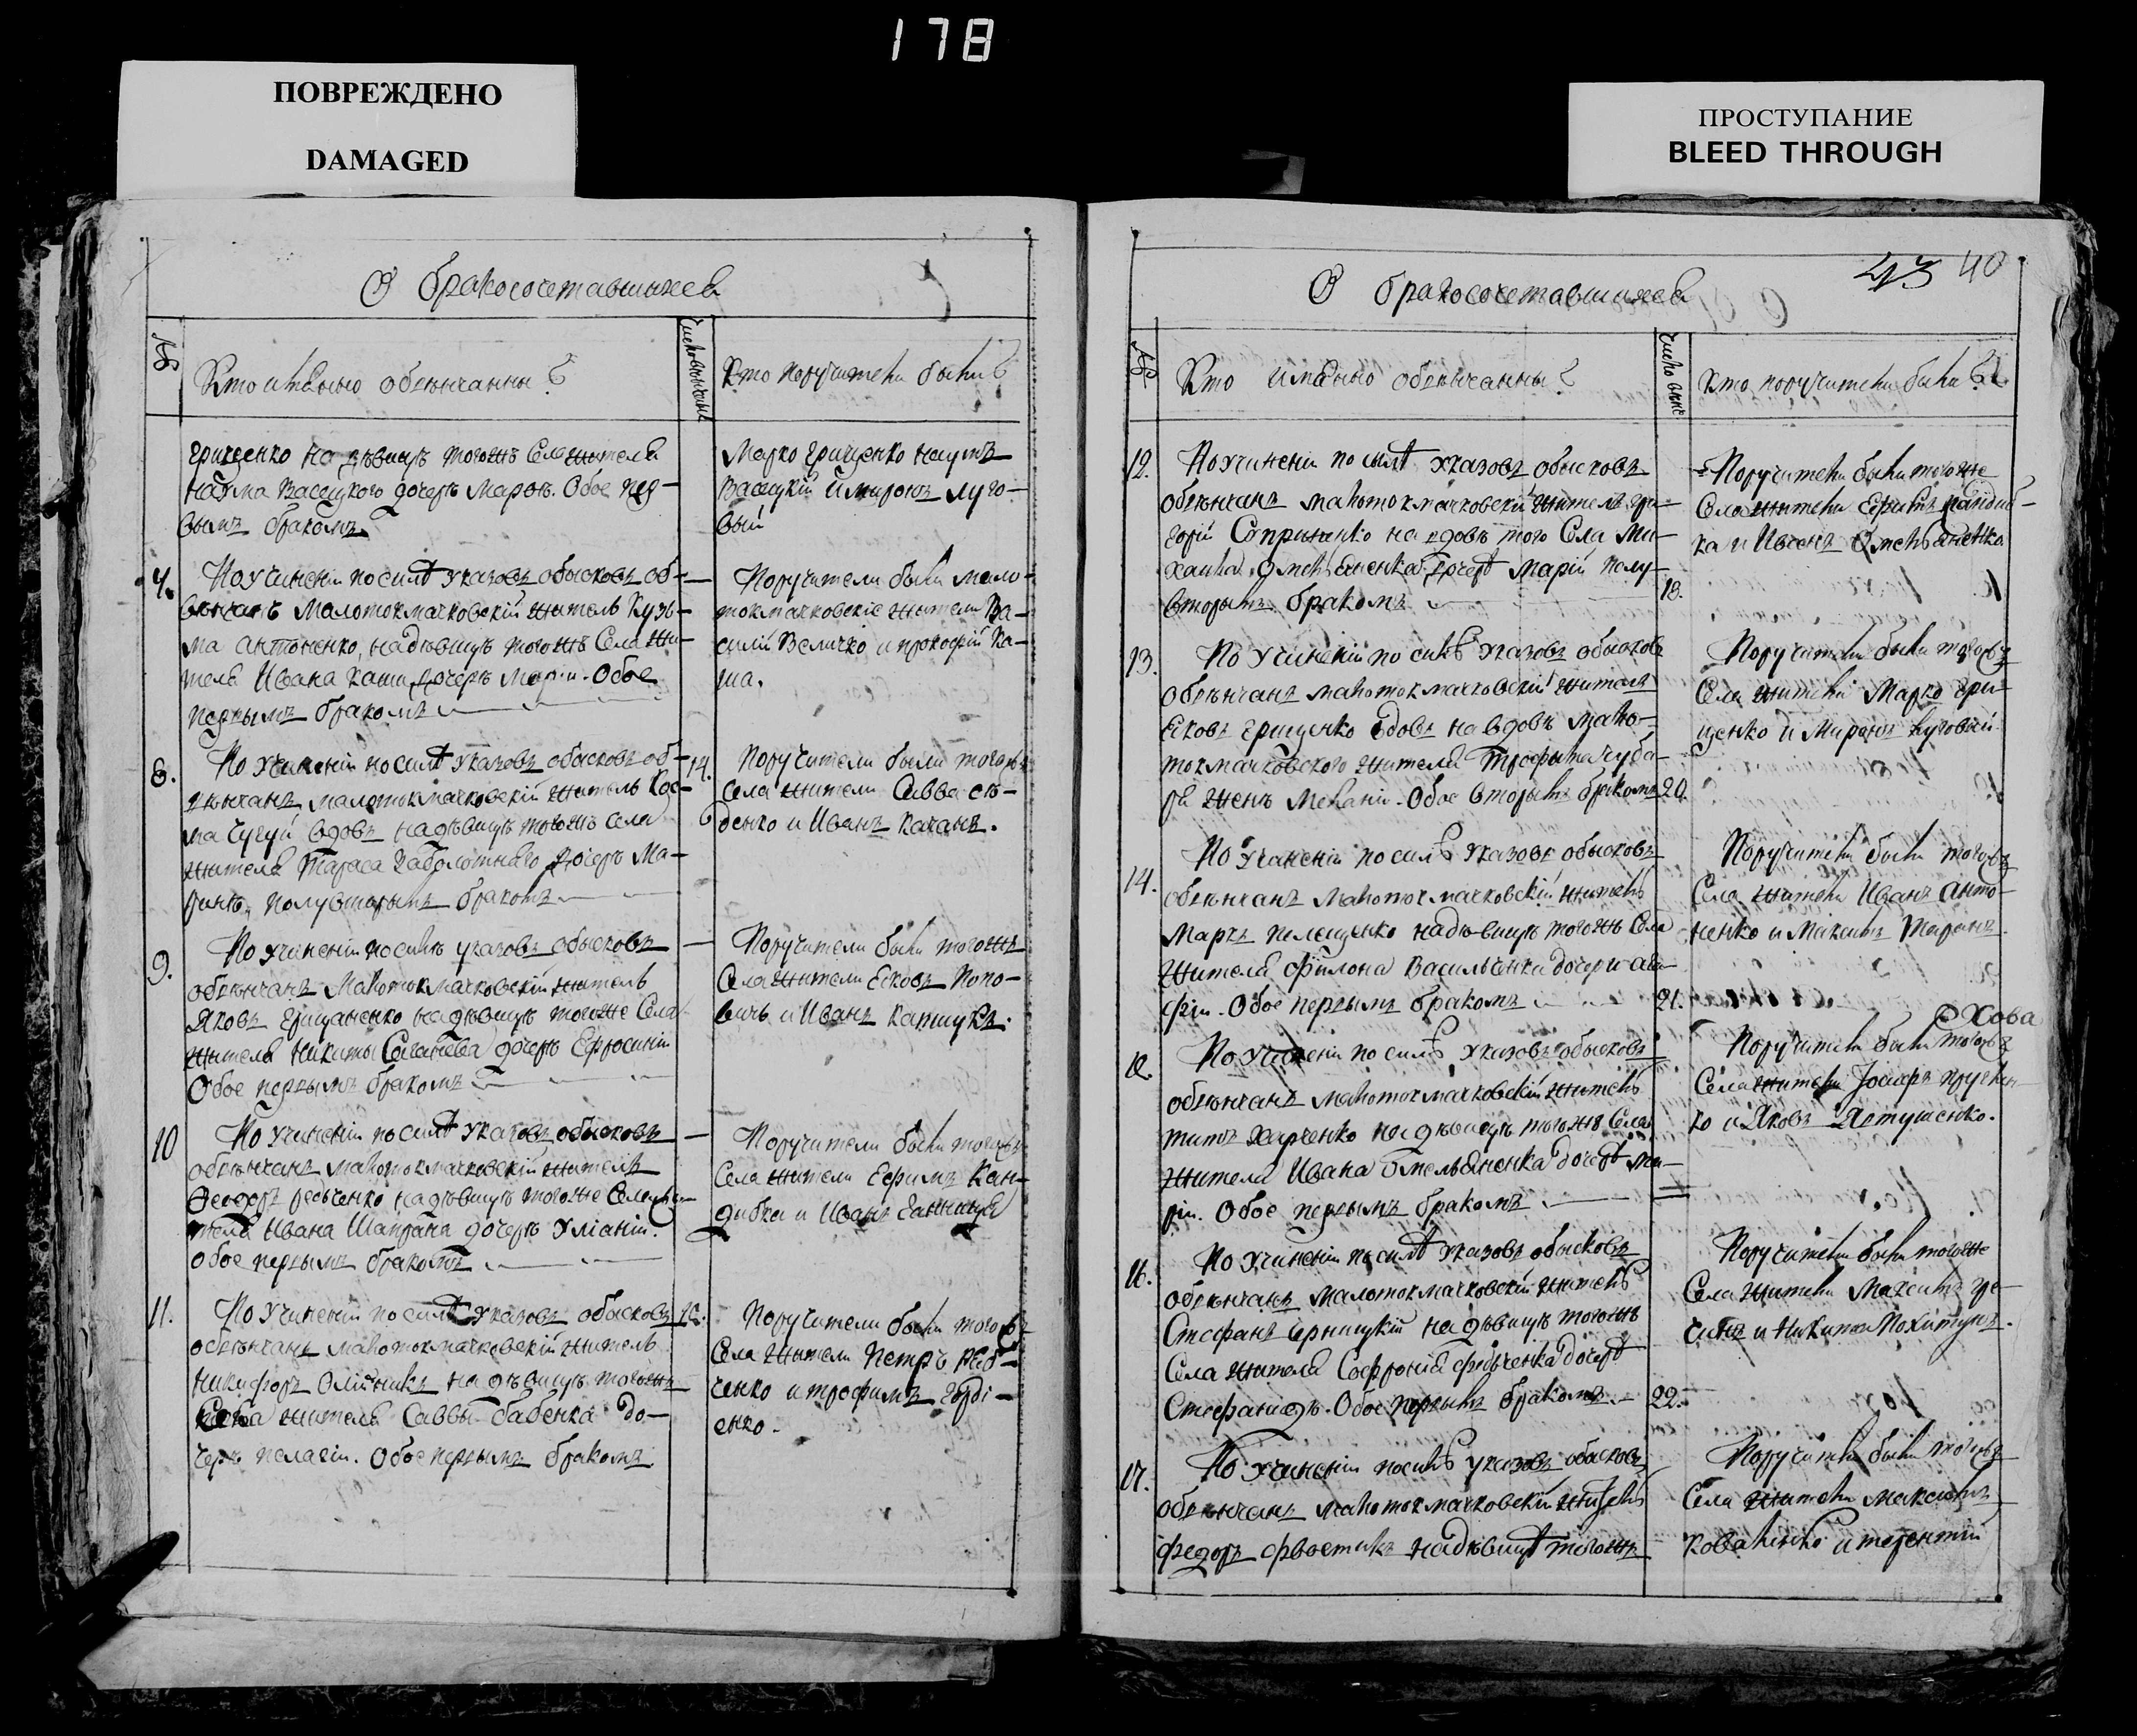 178
ПОВРЕЖДЕНО
DAMAGED
ПРОСТУПАНИЕ
BLEED THROUGH
О бракосочетавшихся
№
Кто имянно обвѣнчанны?
Кто поручители были?
Грищенко на дѣвицѣ тогожъ села жителя
Наума Васецкого дочерѣ Марѳѣ. Обое пер-
вымъ бракомъ
Марко Грищенко Наумъ
Васецкій и Миронъ Луго-
вый
По учиненіи по силѣ указовъ обысковъ об-
вѣнчанъ малотокмачковскій житель Кузь-
ма Антоненко, на дѣвицѣ тогожъ села жи-
теля Ивана Каши дочерѣ Маріи. Обое
первымъ бракомъ
Поручители были мало-
токмачковскіе жители Ва-
силій Величко и Прокофій Ка-
ша.
8.
По учиненіи по силѣ указовъ обысковъ об-
вѣнчанъ малотокмачковскій житель Кос-
ма Чугуй вдовъ на дѣвицѣ тогожъ села
жителя Тараса Заболотнаго дочерѣ Ма-
ринѣ, полувторымъ бракомъ
14.
Поручители были тогожъ
села жители Савва Сѣ-
денко и Иванъ Качанъ.
9.
По учиненіи по силѣ указовъ обысковъ
обвѣнчанъ малотокмачковскій житель
Яковъ Грищаненко на дѣвицѣ тогоже села
жителя Никиты дочерѣ Ефросиніи
Обое первымъ бракомъ
Поручители были тогожъ
села жители Еековъ Попо-
вичь и Иванъ Капшукъ.
10
По учиненіи по силѣ указовъ обысковъ
обвѣнчанъ малотокмачковскій житель
Ѳеодоръ на дѣвицѣ тогоже села жи-
теля Ивана Шапрана дочерѣ Уліаніи.
Обое первымъ бракомъ
Поручители были тогожъ
села жители Ефимъ Кан-
дибка и Иванъ
11.
По учиненіи по силѣ указовъ обысковъ
обвѣнчанъ малотокмачковскій житель
Никифоръ Олійникъ на дѣвицѣ тогожъ
села жителя Саввы Бабенка до-
черѣ Пелагіи. Обое первымъ бракомъ
Поручители были тогожъ
села жители Петръ Ряб-
ченко и Трофимъ Горді-
енко.
43 40
О бракосочетавшихся
№
Кто имянно обвѣнчанны?
Кто поручители были?
12.
По учиненіи по силѣ указовъ обысковъ
обвѣнчанъ малотокмачковскій житель Гри-
горій Сопрыненко на вдовѣ того села Ми-
хаила Омельяненка дочерѣ Маріи полу-
вторымъ бракомъ
18.
Поручители были тогоже
села жители Ефимъ Кандиб-
ка и Омельяненко
13.
По учиненіи по силѣ указовъ обысковъ
обвѣнчанъ малотокмачковскій житель
Еековъ Грищенко вдовъ на вдовѣ мало-
токмачковского жителя Трофима Чуба-
ря женѣ Меланіи. Обое вторымъ бракомъ
20.
Поручители были тогожъ
села жители Марко Гри-
щенко и Миронъ Луговый
14.
По учиненіи по силѣ указовъ обысковъ
обвѣнчанъ малотокмачковскій житель
Маркъ Пелещенко на дѣвицѣ тогожъ села
жителя Филона Васильченка дочери Ага-
фіи. Обое первымъ бракомъ
21.
Поручители были тогожъ
села жители Иванъ Анто-
ненко и Максимъ Таранъ
По учиненіи по силѣ указовъ обысковъ
обвѣнчанъ малотокмачковскій житель
Титъ Харченко на дѣвицѣ тогожъ села
жителя Ивана Омельяненка дочерѣ Ма-
ріи. Обое первымъ бракомъ
Хова
Поручители были тогожъ
села жители Іосифъ
ко и Яковъ Явтушенко.
16.
По учиненіи по силѣ указовъ обысковъ
обвѣнчанъ малотокмачковскій житель
Стефанъ Черницкій на дѣвицѣ тогожъ
села жителя Софронія дочерѣ
Стефанидѣ. Обое первымъ бракомъ
22.
Поручители были тогоже
села жители Максимъ Гре-
чинъ и Никита
17.
По учиненіи по силѣ указовъ обысковъ
обвѣнчанъ малотокмачковскій житель
Федоръ Фвостикъ на дѣвицѣ тогожъ
Поручители были тогожъ
села жители Максимъ
Коваленко и Терентій